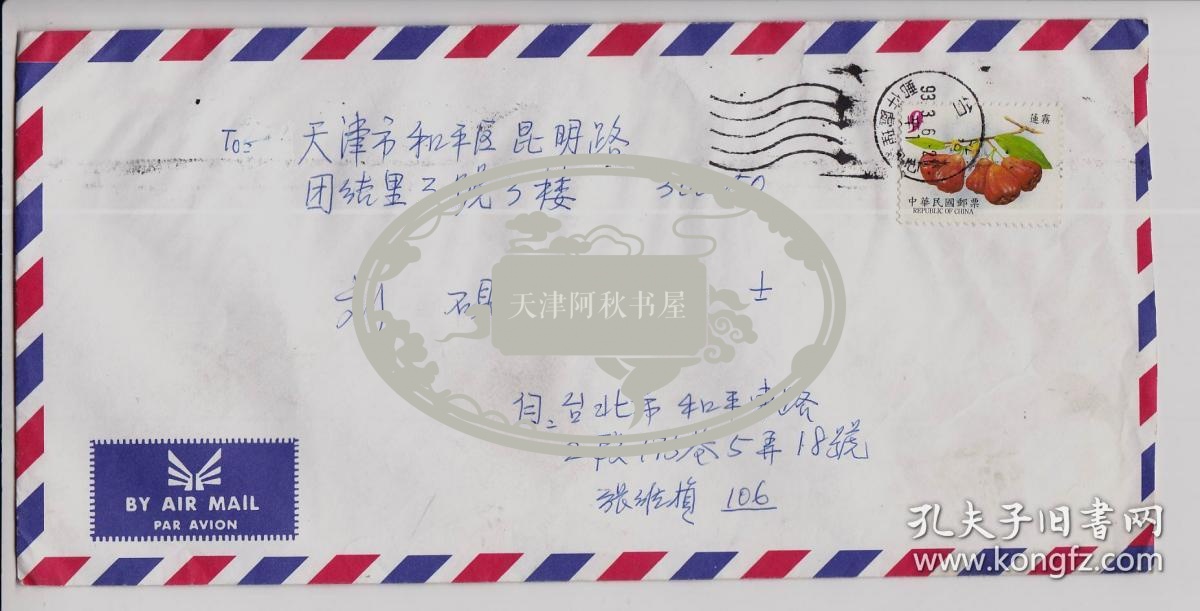 To: 天津市和平区昆明路
团结里
楼
刘
士
天津阿秋书屋
台
93.3.6
蓮霧
9
中華民國郵票
REPUBLIC OF CHINA
自:台北市和平東路
2段 巷5弄18號
張維楨 106
BY AIR MAIL
PAR AVION
孔夫子旧書网
www.kongfz.com